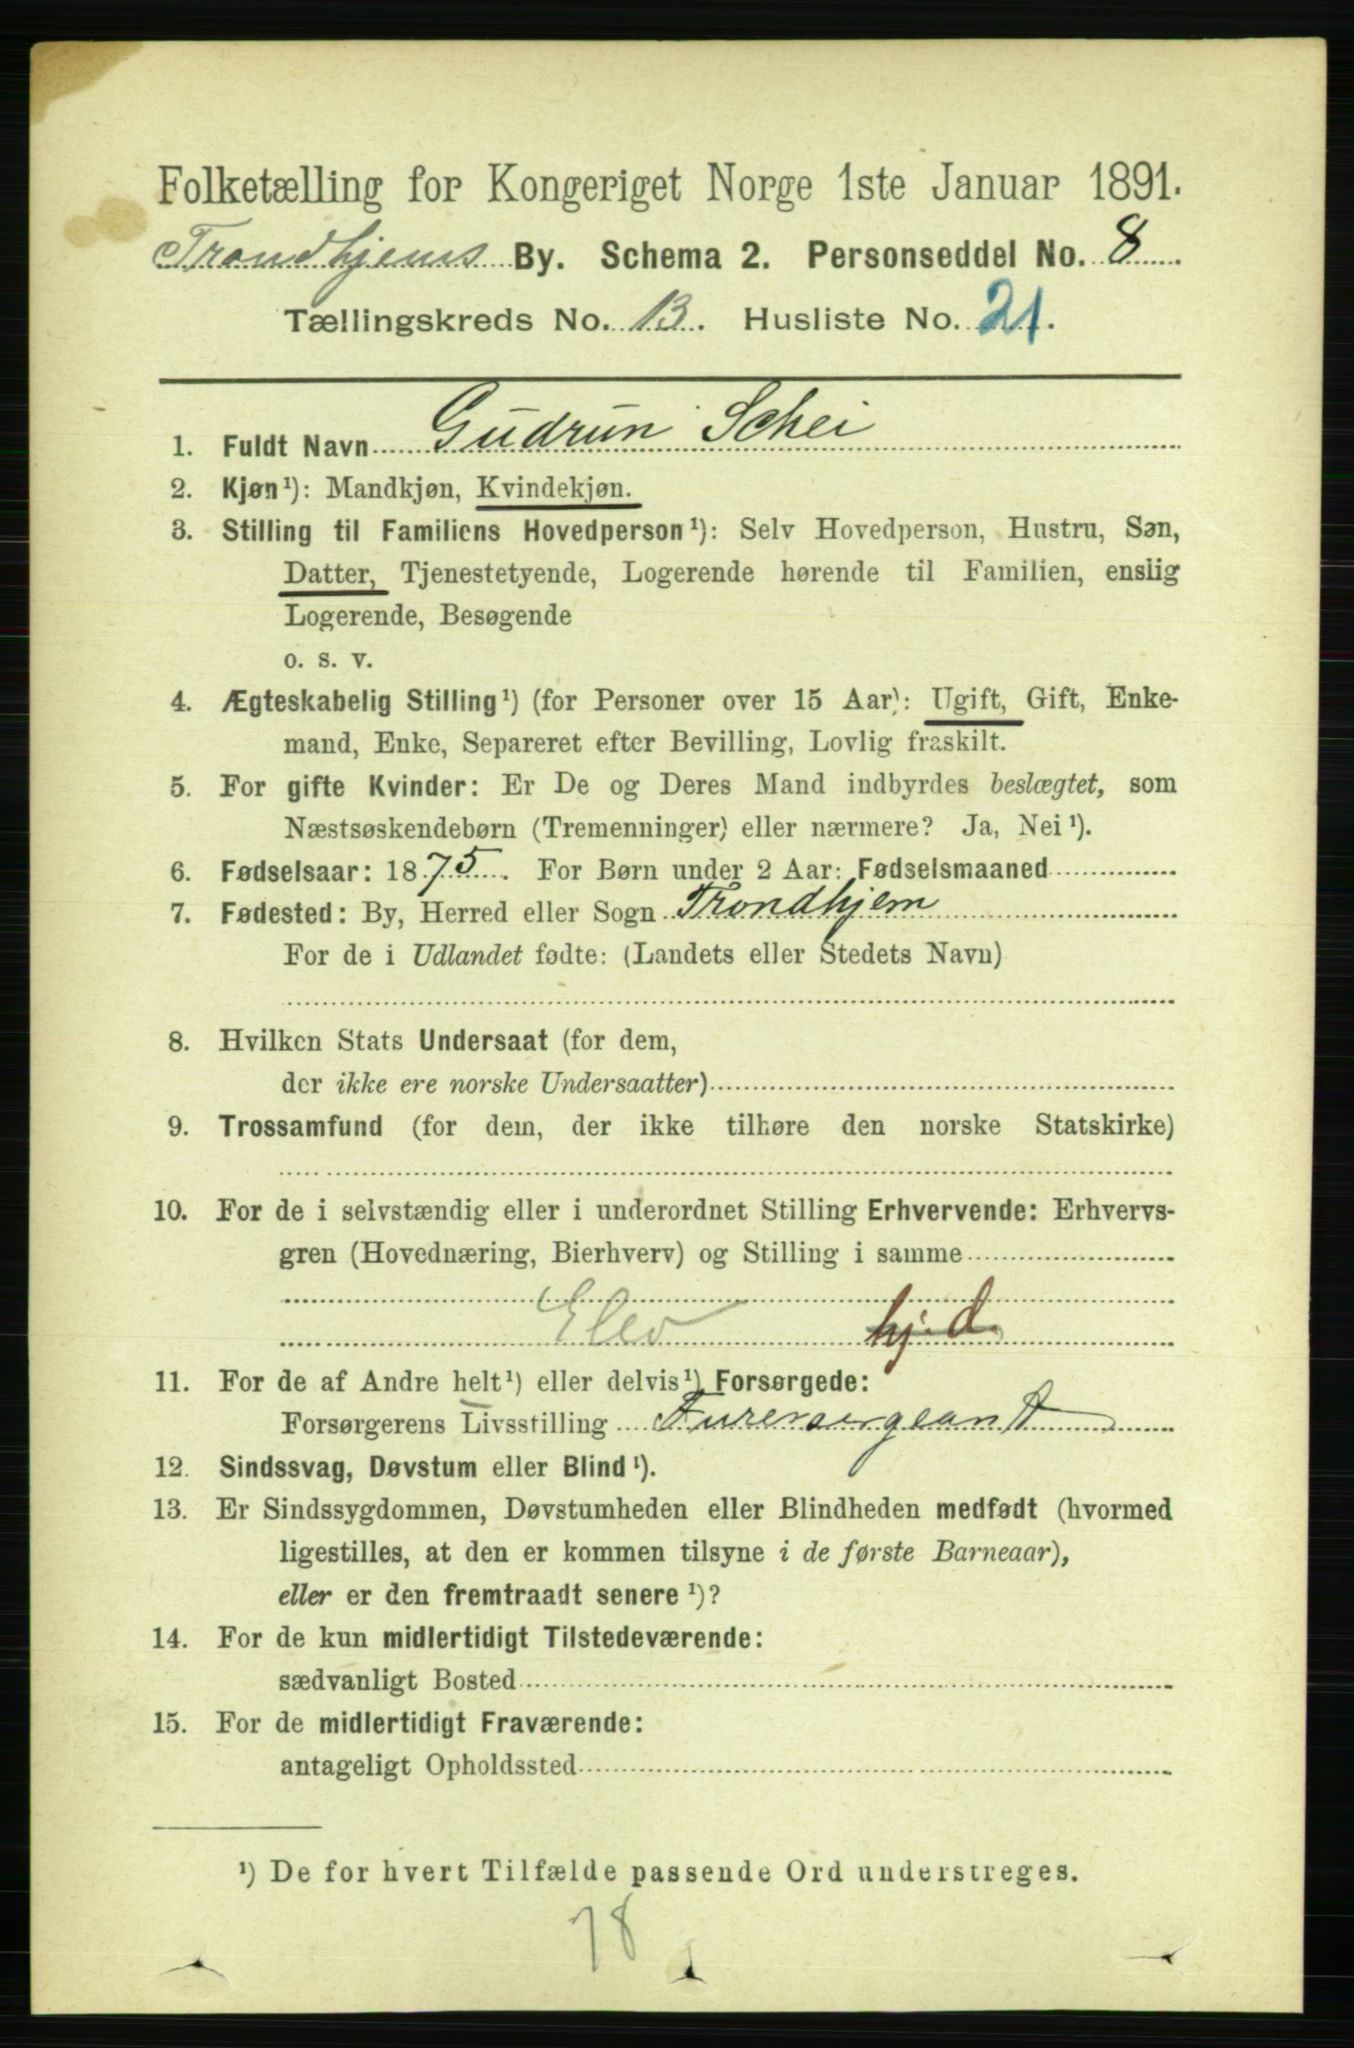 Folketælling for Kongeriget Norge 1ste Januar 1891.
Trondhjems By. Schema 2. Personseddel No. 8
Tællingskreds No. 13. Husliste No. 21.
1. Fuldt Navn Gudrun Schei
2. Kjøn¹): Mandkjøn, Kvindekjøn.
3. Stilling til Familiens Hovedperson¹): Selv Hovedperson, Hustru, Søn,
Datter, Tjenestetyende, Logerende hørende til Familien, enslig
Logerende, Besøgende
o. s. v.
4. Ægteskabelig Stilling¹) (for Personer over 15 Aar): Ugift, Gift, Enke-
mand, Enke, Separeret efter Bevilling, Lovlig fraskilt.
5. For gifte Kvinder: Er De og Deres Mand indbyrdes beslægtet, som
Næstsøskendebørn (Tremenninger) eller nærmere? Ja, Nei¹).
6. Fødselsaar: 1875. For Børn under 2 Aar: Fødselsmaaned
7. Fødested: By, Herred eller Sogn Trondhjem
For de i Udlandet fødte: (Landets eller Stedets Navn)
8. Hvilken Stats Undersaat (for dem,
der ikke ere norske Undersaatter)
9. Trossamfund (for dem, der ikke tilhøre den norske Statskirke)
10. For de i selvstændig eller i underordnet Stilling Erhvervende: Erhvervs-
gren (Hovednæring, Bierhverv) og Stilling i samme
Elev hj. d.
11. For de af Andre helt¹) eller delvis¹) Forsørgede:
Forsørgerens Livsstilling Furersergeant
12. Sindssvag, Døvstum eller Blind¹).
13. Er Sindssygdommen, Døvstumheden eller Blindheden medfødt (hvormed
ligestilles, at den er kommen tilsyne i de første Barneaar),
eller er den fremtraadt senere¹)?
14. For de kun midlertidigt Tilstedeværende:
sædvanligt Bosted
15. For de midlertidigt Fraværende:
antageligt Opholdssted
¹) De for hvert Tilfælde passende Ord understreges.
78